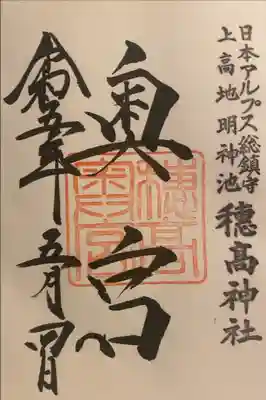 日本アルプス総鎮守
上高地明神池
穂髙神社
奥宮
令五年五月四日
穂高
奥宮